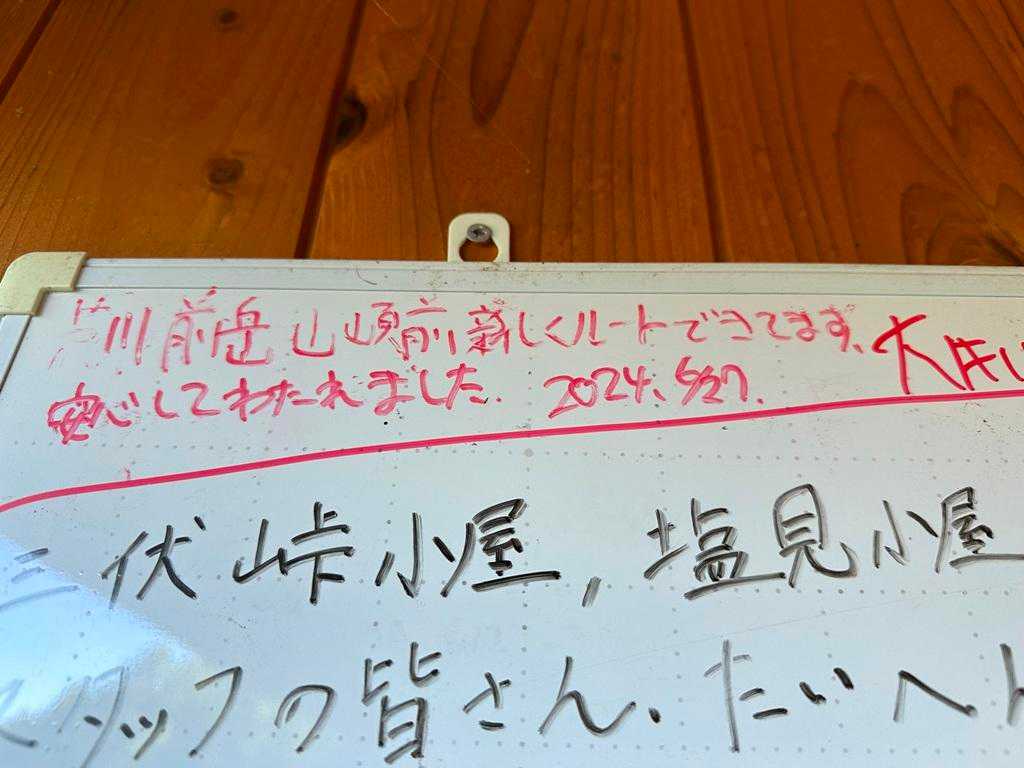 荒川前岳山頂前新しくルートできてます、
安心してわたれました. 2024. 5/27.
三伏峠小屋, 塩見小屋
スタッフの皆さん、たいへん